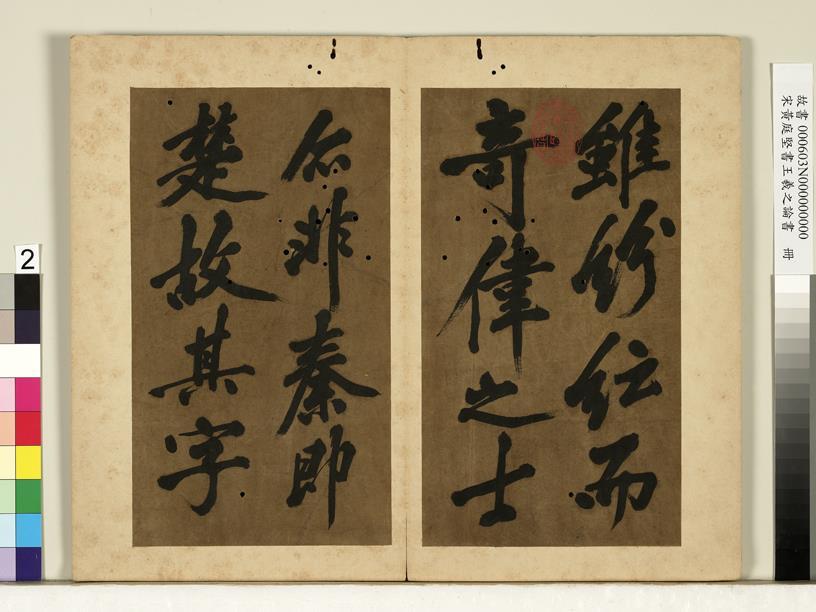 雖紛紜而
奇偉之士
非秦即
楚故其字
故書 000603N000000000
宋黃庭堅書王羲之論書 冊
2